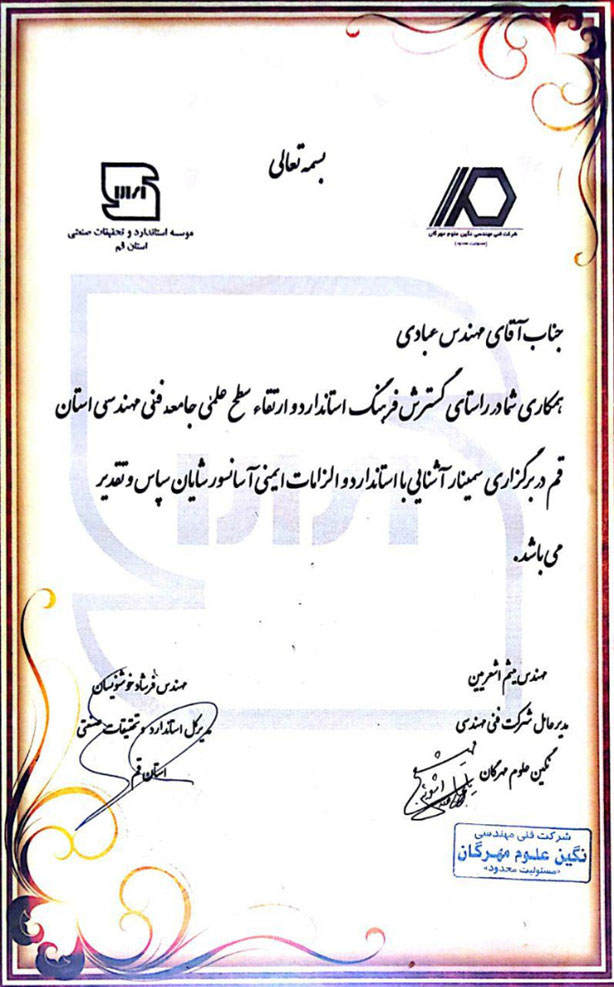 بسمه تعالی
شرکت فنی مهندسی نگین علوم مهرگان
(مسئولیت محدود)
موسسه استاندارد و تحقیقات صنعتی
استان قم
جناب آقای مهندس عبادی
همکاری شما در راستای گسترش فرهنگ استاندارد و ارتقاء سطح علمی جامعه فنی مهندسی استان
قم در برگزاری سمینار آشنایی با استاندارد و الزامات ایمنی آسانسور شایان سپاس و تقدیر
می باشد.
مهندس میثم اشعریین
مدیرعامل شرکت فنی مهندسی
نگین علوم مهرگان
مهندس فرشاد خوشنویسان
مدیرکل استاندارد و تحقیقات صنعتی
استان قم
شرکت فنی مهندسی
نگین علوم مهرگان
«مسئولیت محدود»